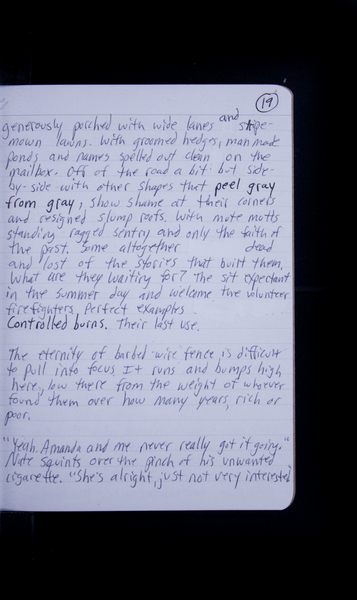 19
generously porched with wide lanes and stripe-
mown lawns. With groomed hedges, man made
ponds and names spelled out clean on the
mailbox. Off of the road a bit but side-
by-side with other shapes that peel gray
from gray, show shame at their corners
and resigned slump roofs. With mute mutts
standing ragged sentry and only the faith of
the past. Some altogether dead
and lost of the stories that built them.
What are they waiting for? The sit expectant
in the summer day and welcome the volunteer
firefighters. Perfect examples.
Controlled burns. Their last use.
The eternity of barbed wire fence is difficult
to pull into focus. It runs and bumps high
here, low there from the weight of whoever
found them over how many years, rich or
poor.
"Yeah. Amanda and me never really got it going."
Nate squints over the pinch of his unwanted
cigarette. "She's alright, just not very interested